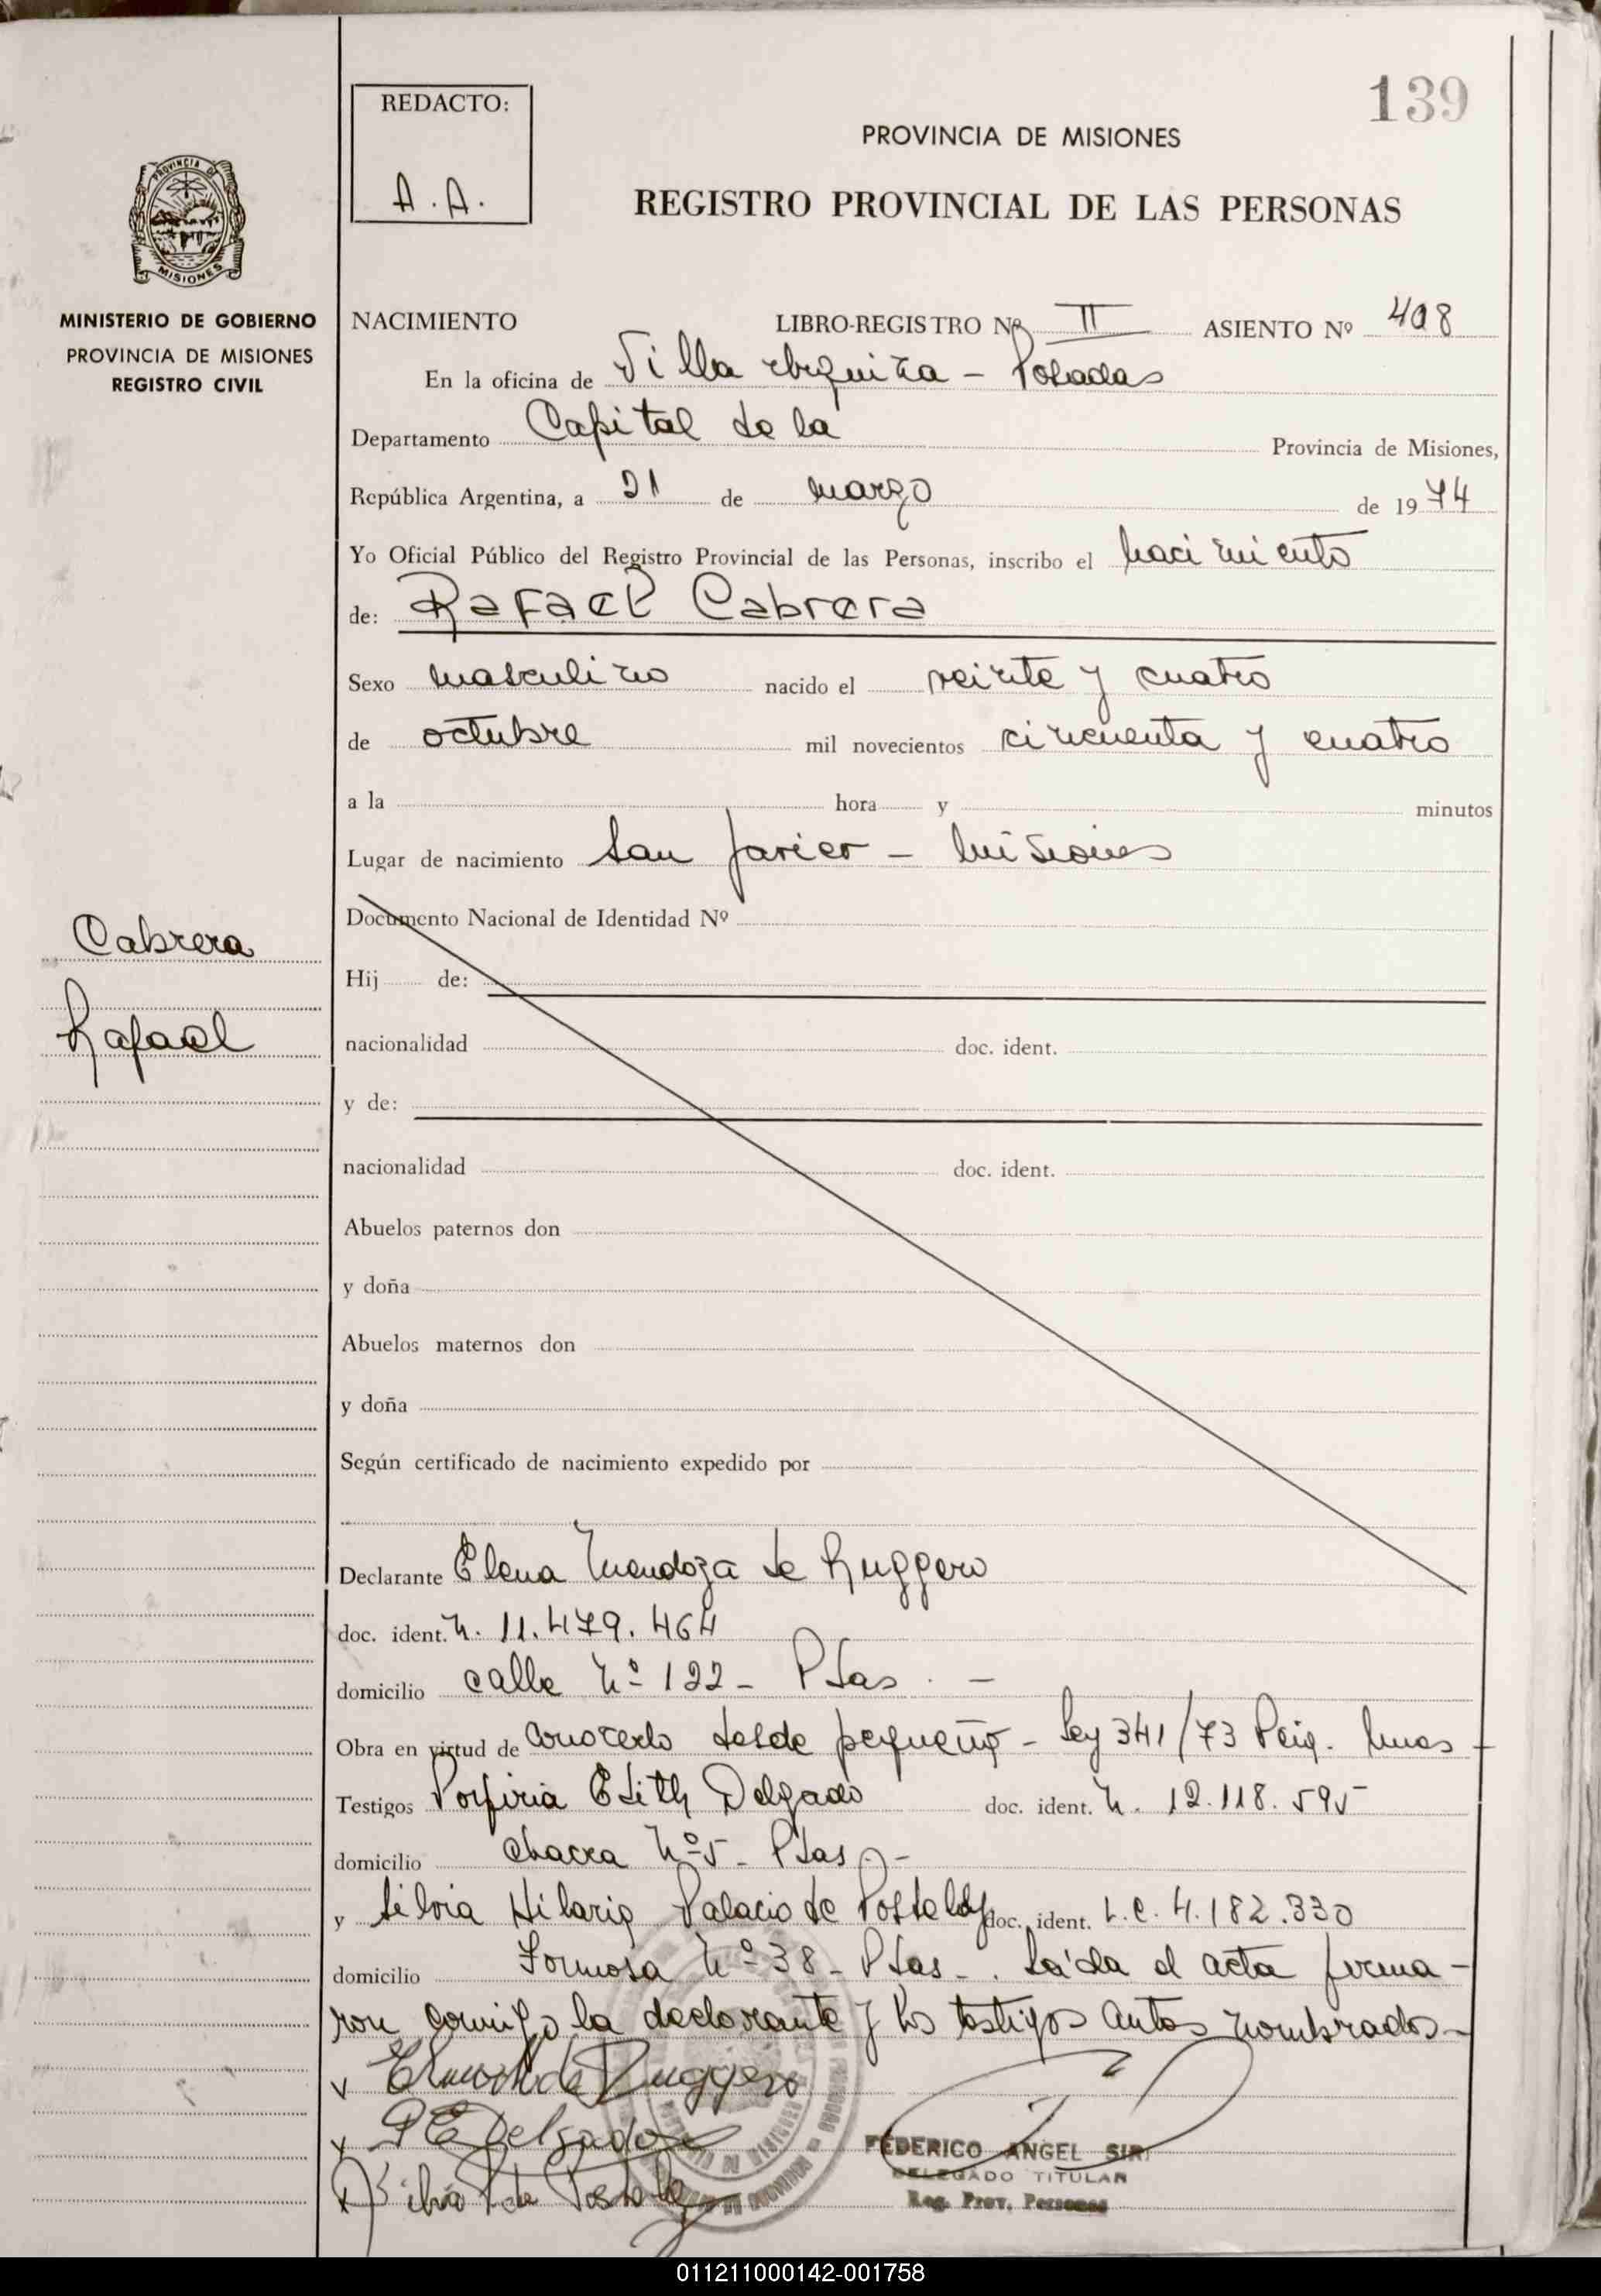 139
REDACTO:
A.A.
PROVINCIA DE MISIONES
REGISTRO PROVINCIAL DE LAS PERSONAS
PROVINCIA DE
MISIONES
MINISTERIO DE GOBIERNO
PROVINCIA DE MISIONES
REGISTRO CIVIL
NACIMIENTO LIBRO-REGISTRO Nº II ASIENTO Nº 408
En la oficina de Villa Urquiza - Posadas
Departamento Capital de la Provincia de Misiones,
República Argentina, a 21 de marzo de 1974
Yo Oficial Público del Registro Provincial de las Personas, inscribo el nacimiento
de: Rafael Cabrera
Sexo masculino nacido el veinte y cuatro
de octubre mil novecientos cincuenta y cuatro
a la hora y minutos
Lugar de nacimiento San Javier - Misiones
Documento Nacional de Identidad Nº
Cabrera
Rafael
Hij de:
nacionalidad doc. ident.
y de:
nacionalidad doc. ident.
Abuelos paternos don
y doña
Abuelos maternos don
y doña
Según certificado de nacimiento expedido por
Declarante Elena Mendoza de Ruggero
doc. ident. N. 11.479.464
domicilio calle Nº 122 - Pdas. -
Obra en virtud de conocerlo desde pequeño - Ley 341/73
Testigos Porfiria Edith Delgado doc. ident. N. 12.118.595
domicilio chacra Nº 5 - Pdas -
y Silvia Hilaria Palacio de doc. ident. L.C. 4.182.330
domicilio Formosa Nº 38 - Pdas -. Leída el acta firma-
ron conmigo la declarante y los testigos antes nombrados -
de Ruggero
P E Delgado
FEDERICO ANGEL SIR
DELEGADO TITULAR
Reg. Prov. Personas
011211000142-001758